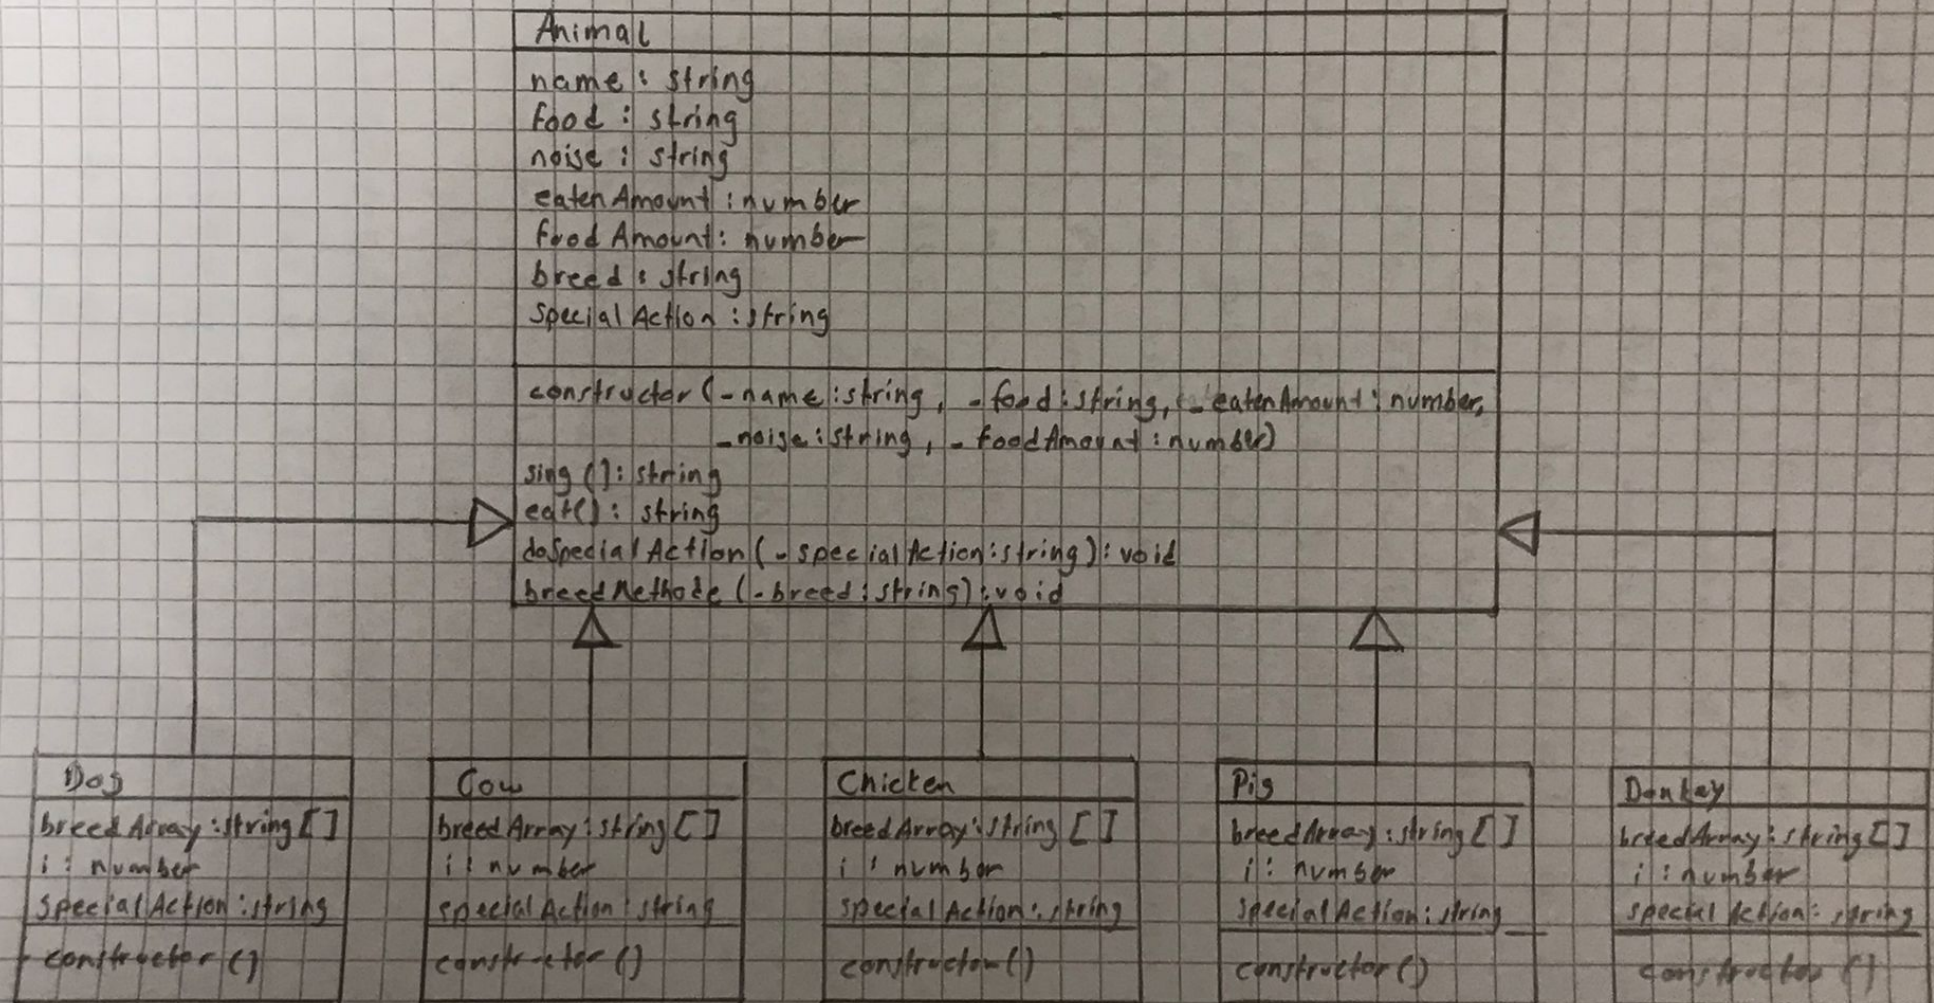 Animal
name : string
food : string
noise : string
eatenAmount : number
foodAmount : number
breed : string
specialAction : string
constructor (_name : string, _food : string, _eatenAmount : number,
_noise : string, _foodAmount : number)
sing () : string
eat() : string
doSpecialAction (_specialAction : string) : void
breedMethode (_breed : string) : void
Dog
breedArray : string []
i : number
specialAction : string
constructor ()
Cow
breedArray : string []
i : number
specialAction : string
constructor ()
Chicken
breedArray : string []
i : number
specialAction : string
constructor ()
Pig
breedArray : string []
i : number
specialAction : string
constructor ()
Donkey
breedArray : string []
i : number
specialAction : string
constructor ()